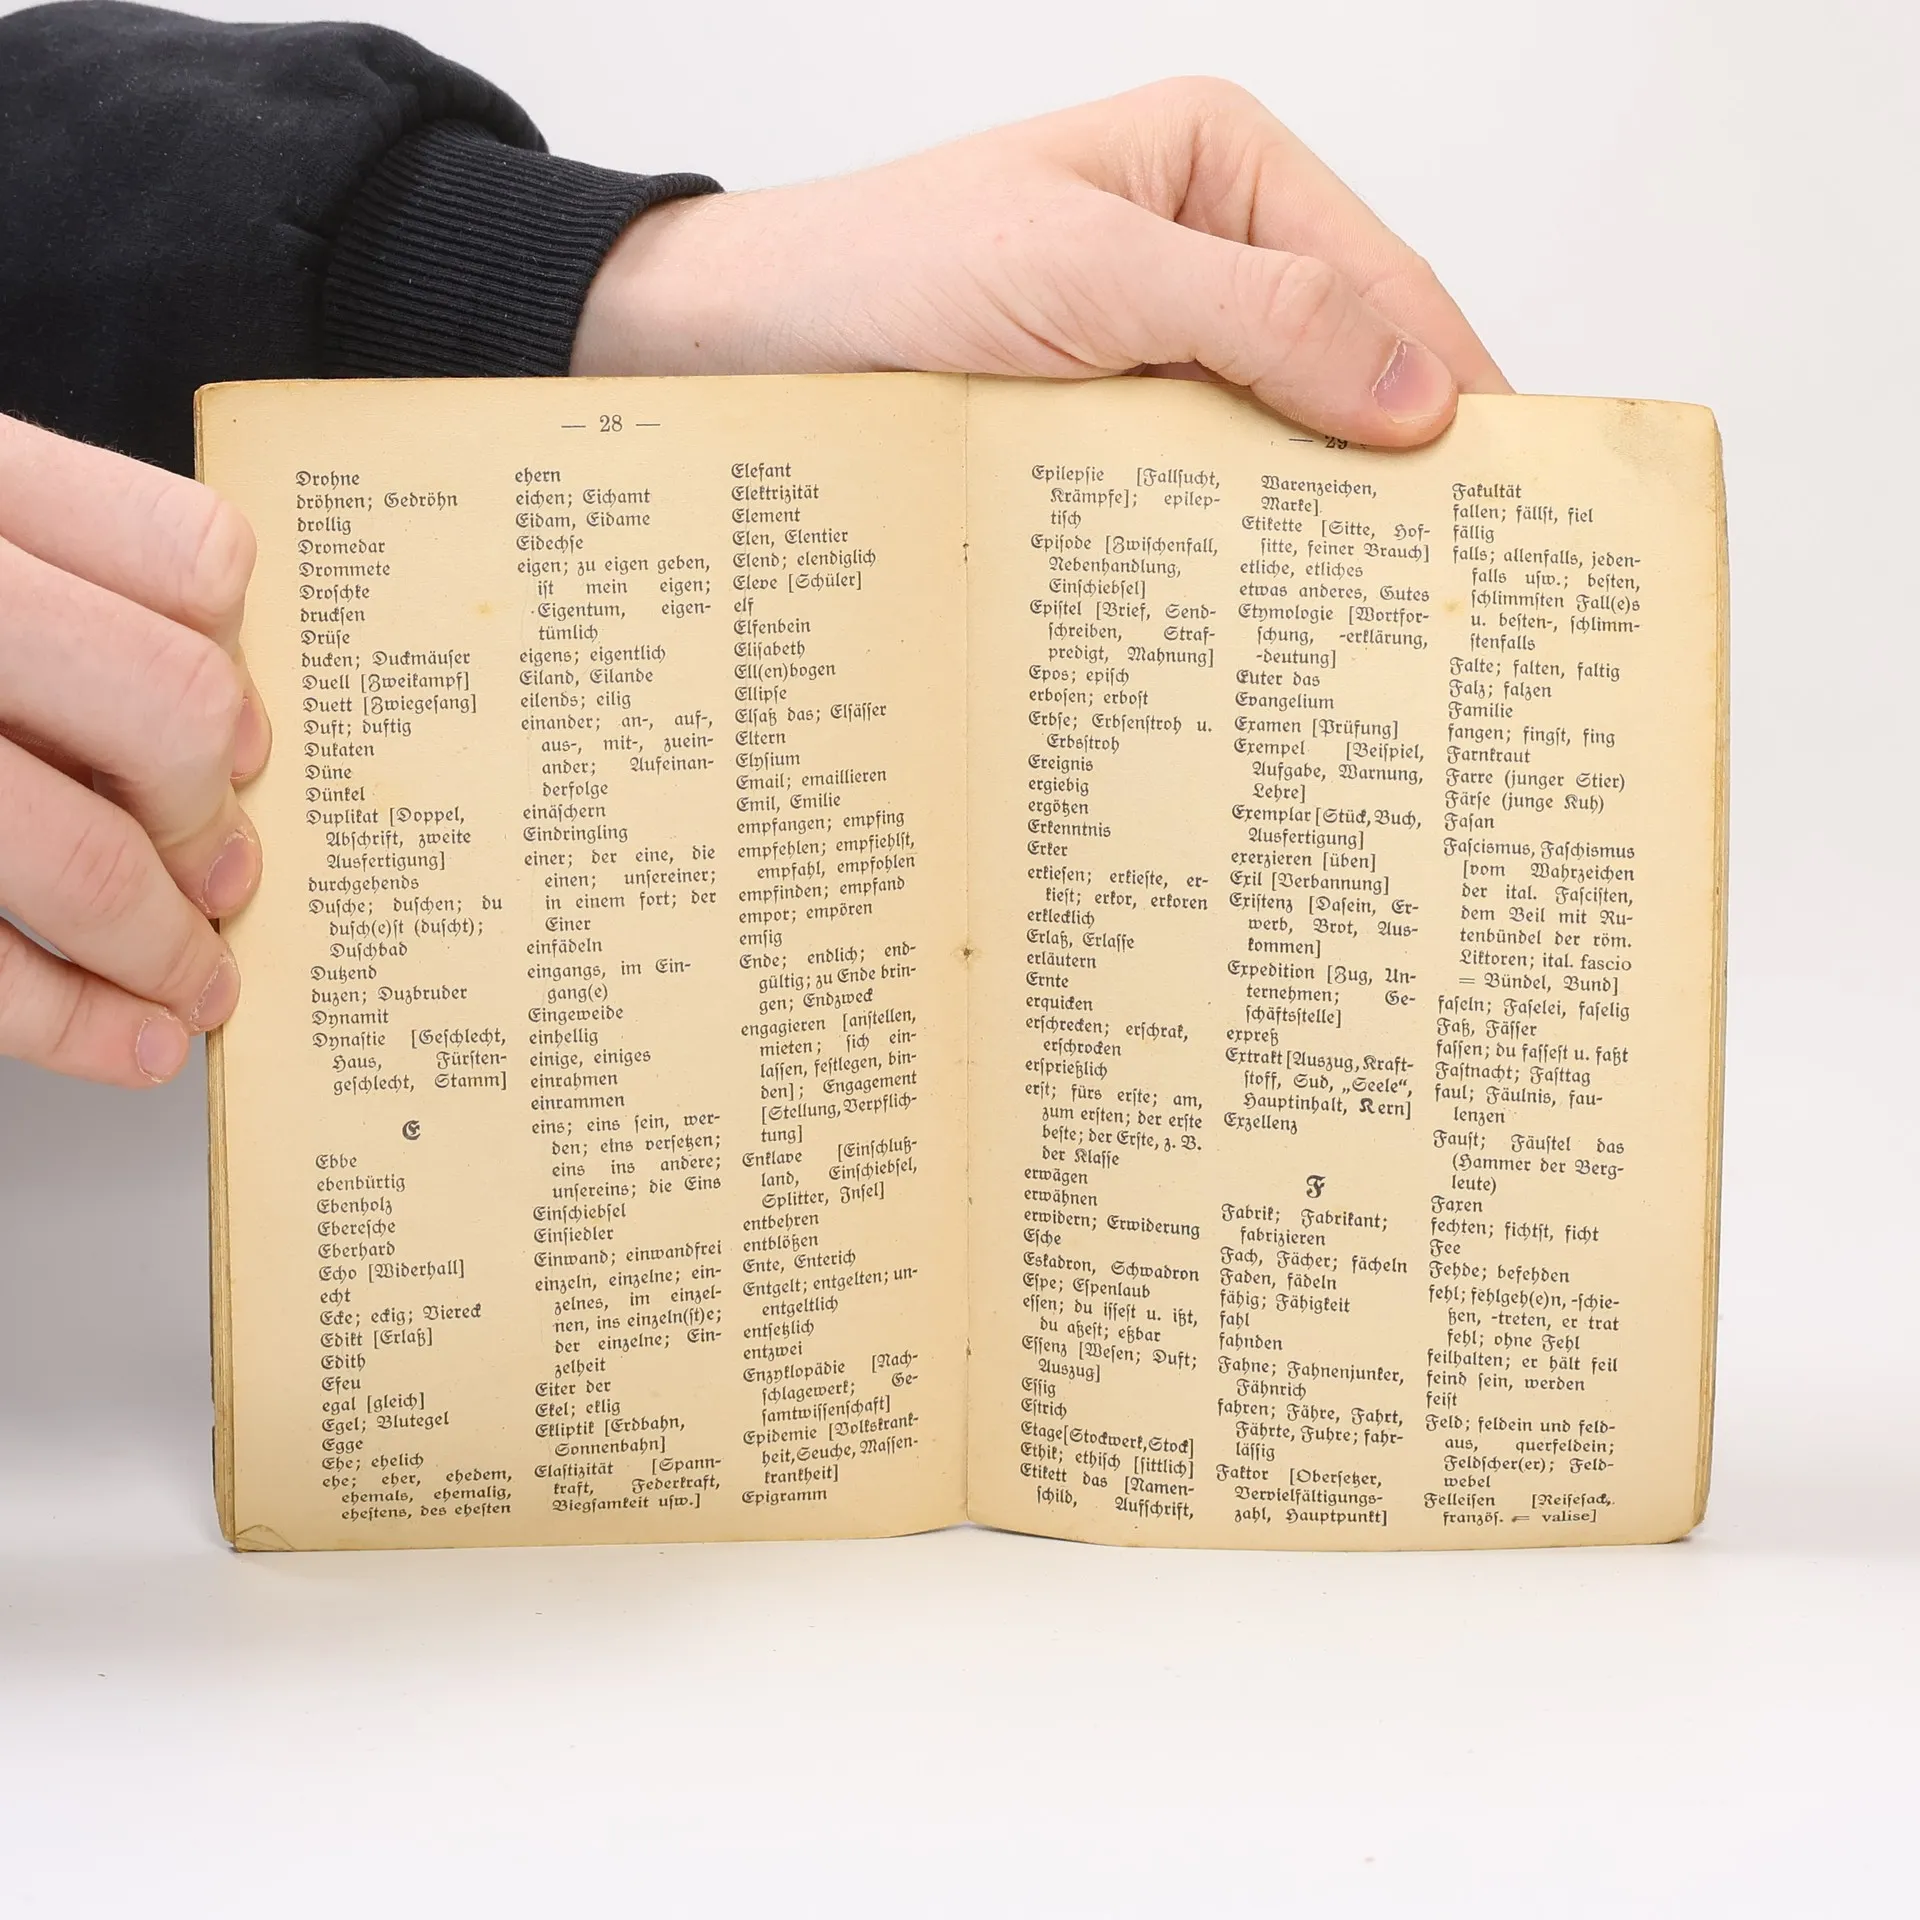 — 28 —
Drohne
dröhnen; Gedröhn
drollig
Dromedar
Drommete
Droschke
drucksen
Drüse
ducken; Duckmäuser
Duell [Zweikampf]
Duett [Zwiegesang]
Duft; duftig
Dukaten
Düne
Dünkel
Duplikat [Doppel,
Abschrift, zweite
Ausfertigung]
durchgehends
Dusche; duschen; du
dusch(e)st (duscht);
Duschbad
Dutzend
duzen; Duzbruder
Dynamit
Dynastie [Geschlecht,
Haus, Fürsten-
geschlecht, Stamm]
E
Ebbe
ebenbürtig
Ebenholz
Eberesche
Eberhard
Echo [Widerhall]
echt
Ecke; eckig; Viereck
Edikt [Erlaß]
Edith
Efeu
egal [gleich]
Egel; Blutegel
Egge
Ehe; ehelich
ehe; eher, ehedem,
ehemals, ehemalig,
ehestens, des ehesten
ehern
eichen; Eichamt
Eidam, Eidame
Eidechse
eigen; zu eigen geben,
ist mein eigen;
Eigentum, eigen-
tümlich
eigens; eigentlich
Eiland, Eilande
eilends; eilig
einander; an-, auf-,
aus-, mit-, zuein-
ander; Aufeinan-
derfolge
einäschern
Eindringling
einer; der eine, die
einen; unsereiner;
in einem fort; der
Einer
einfädeln
eingangs, im Ein-
gang(e)
Eingeweide
einhellig
einige, einiges
einrahmen
einrammen
eins; eins sein, wer-
den; eins versetzen;
eins ins andere;
unsereins; die Eins
Einschiebsel
Einsiedler
Einwand; einwandfrei
einzeln, einzelne; ein-
zelnes, im einzel-
nen, ins einzeln(st)e;
der einzelne; Ein-
zelheit
Eiter der
Ekel; eklig
Ekliptik [Erdbahn,
Sonnenbahn]
Elastizität [Spann-
kraft, Federkraft,
Biegsamkeit usw.]
Elefant
Elektrizität
Element
Elen, Elentier
Elend; elendiglich
Eleve [Schüler]
elf
Elfenbein
Elisabeth
Ell(en)bogen
Ellipse
Elsaß das; Elsässer
Eltern
Elysium
Email; emaillieren
Emil, Emilie
empfangen; empfing
empfehlen; empfiehlst,
empfahl, empfohlen
empfinden; empfand
empor; empören
emsig
Ende; endlich; end-
gültig; zu Ende brin-
gen; Endzweck
engagieren [anstellen,
mieten; sich ein-
lassen, festlegen, bin-
den]; Engagement
[Stellung, Verpflich-
tung]
Enklave [Einschluß-
land, Einschiebsel,
Splitter, Insel]
entbehren
entblößen
Ente, Enterich
Entgelt; entgelten; un-
entgeltlich
entsetzlich
entzwei
Enzyklopädie [Nach-
schlagewerk; Ge-
samtwissenschaft]
Epidemie [Volkskrank-
heit, Seuche, Massen-
krankheit]
Epigramm
— 29
Epilepsie [Fallsucht,
Krämpfe]; epilep-
tisch
Episode [Zwischenfall,
Nebenhandlung,
Einschiebsel]
Epistel [Brief, Send-
schreiben, Straf-
predigt, Mahnung]
Epos; episch
erbosen; erbost
Erbse; Erbsenstroh u.
Erbsstroh
Ereignis
ergiebig
ergötzen
Erkenntnis
Erker
erkiesen; erkieste, er-
kiest; erkor, erkoren
erklecklich
Erlaß, Erlasse
erläutern
Ernte
erquicken
erschrecken; erschrak,
erschrocken
ersprießlich
erst; fürs erste; am,
zum ersten; der erste
beste; der Erste, z. B.
der Klasse
erwägen
erwähnen
erwidern; Erwiderung
Esche
Eskadron, Schwadron
Espe; Espenlaub
essen; du issest u. ißt,
du aßest; eßbar
Essenz [Wesen; Duft;
Auszug]
Essig
Estrich
Etage [Stockwerk, Stock]
Ethik; ethisch [sittlich]
Etikett das [Namen-
schild, Aufschrift,
Warenzeichen,
Marke]
Etikette [Sitte, Hof-
sitte, feiner Brauch]
etliche, etliches
etwas anderes, Gutes
Etymologie [Wortfor-
schung, -erklärung,
-deutung]
Euter das
Evangelium
Examen [Prüfung]
Exempel [Beispiel,
Aufgabe, Warnung,
Lehre]
Exemplar [Stück, Buch,
Ausfertigung]
exerzieren [üben]
Exil [Verbannung]
Existenz [Dasein, Er-
werb, Brot, Aus-
kommen]
Expedition [Zug, Un-
ternehmen; Ge-
schäftsstelle]
expreß
Extrakt [Auszug, Kraft-
stoff, Sud, „Seele“,
Hauptinhalt, Kern]
Exzellenz
F
Fabrik; Fabrikant;
fabrizieren
Fach, Fächer; fächeln
Faden, fädeln
fähig; Fähigkeit
fahl
fahnden
Fahne; Fahnenjunker,
Fähnrich
fahren; Fähre, Fahrt,
Fährte, Fuhre; fahr-
lässig
Faktor [Obersetzer,
Vervielfältigungs-
zahl, Hauptpunkt]
Fakultät
fallen; fällst, fiel
fällig
falls; allenfalls, jeden-
falls usw.; besten,
schlimmsten Fall(e)s
u. besten-, schlimm-
stenfalls
Falte; falten, faltig
Falz; falzen
Familie
fangen; fingst, fing
Farnkraut
Farre (junger Stier)
Färse (junge Kuh)
Fasan
Fascismus, Faschismus
[vom Wahrzeichen
der ital. Fascisten,
dem Beil mit Ru-
tenbündel der röm.
Liktoren; ital. fascio
= Bündel, Bund]
faseln; Faselei, faselig
Faß, Fässer
fassen; du fassest u. faßt
Fastnacht; Fasttag
faul; Fäulnis, fau-
lenzen
Faust; Fäustel das
(Hammer der Berg-
leute)
Faxen
fechten; fichtst, ficht
Fee
Fehde; befehden
fehl; fehlgeh(e)n, -schie-
ßen, -treten, er trat
fehl; ohne Fehl
feilhalten; er hält feil
feind sein, werden
feist
Feld; feldein und feld-
aus, querfeldein;
Feldscher(er); Feld-
webel
Felleisen [Reisesack,
französ. = valise]